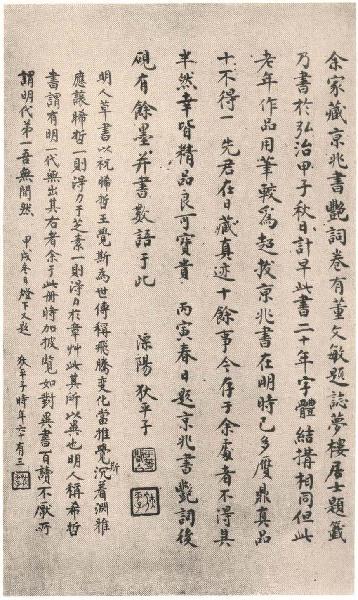 余家藏京兆書艷詞卷有董文敏題誌夢樓居士題籤
乃書於弘治甲子秋日計早此書二十年字體結搆相同但此
老年作品用筆較為超拔京兆書在明時已多贋鼎真品
十不得一先君在日藏真迹十餘事今存于余處者不得其
半然幸皆精品良可寶貴丙寅春日題京兆書艷詞後
硯有餘墨并書數語于此 溧陽狄平子
明人草書以祝希哲王覺斯為世傳稱飛騰變化當推覺斯沉着淵雅
應讓希哲一則得力于芝素一則得力於章艸此其所以異也明人稱希哲
書謂有明一代無出其右者余于此冊時加披覽如對異書百讀不厭所
謂明代第一吾無閒然 甲戌冬日燈下又題 狄平子時年六十有三